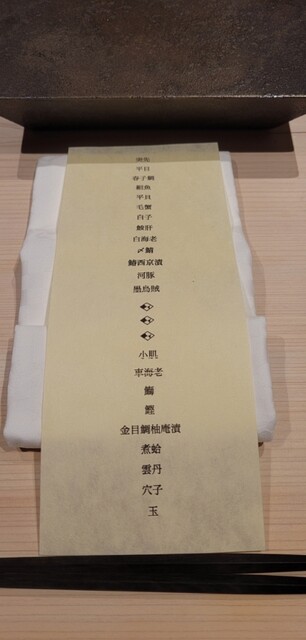 平目
春子鯛
平貝
毛蟹
白子
鮟肝
白海老
〆鯖
鰆西京漬
河豚
墨烏賊
小肌
車海老
鰤
鰹
金目鯛柚庵漬
煮蛤
雲丹
穴子
玉